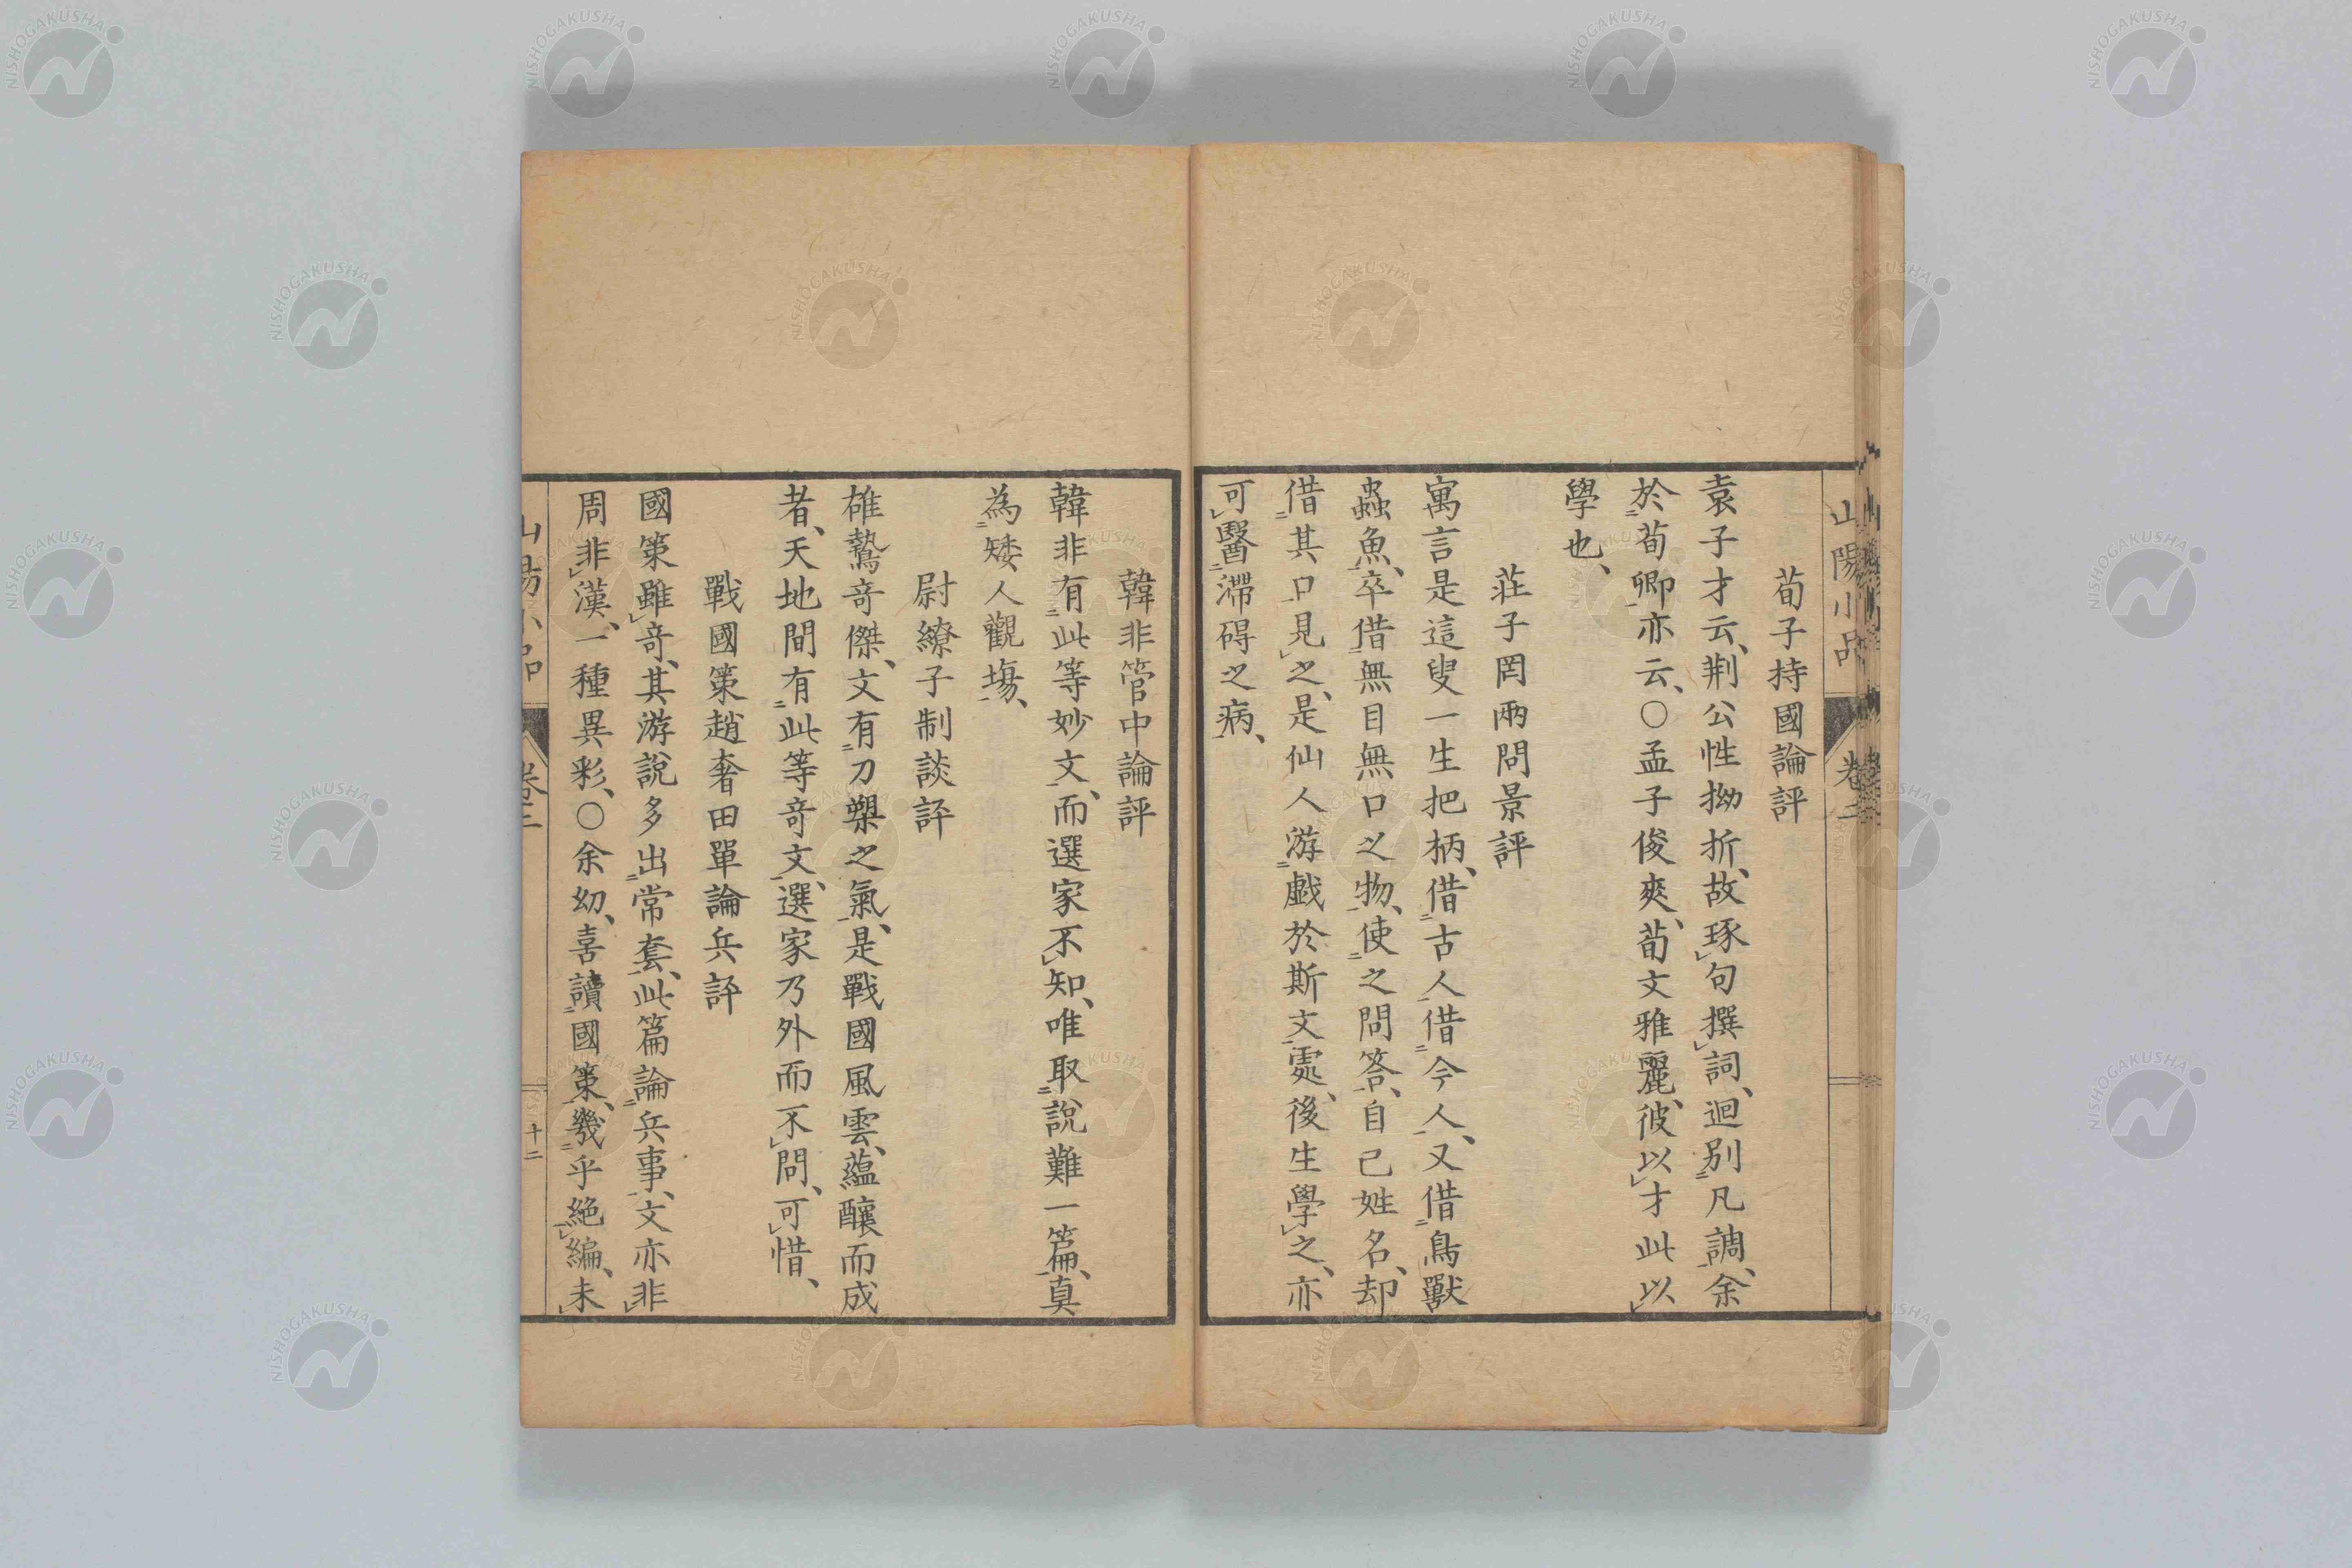 山陽小品 卷二
荀子持國論評
袁子才云、荆公性拗折、故琢句撰詞、迥别凡調、余
於荀卿亦云、○孟子俊爽、荀文雅麗、彼以才此以
學也、
莊子罔兩問景評
寓言是這叟一生把柄、借古人借今人、又借鳥獸
蟲魚、卒借無目無口之物、使之問答、自己姓名、却
借其口見之、是仙人游戲於斯文處、後生學之、亦
可醫滯碍之病、
韓非管中論評
韓非有此等妙文、而選家不知、唯取說難一篇、真
為矮人觀場、
尉繚子制談評
雄鷙奇傑、文有刀槊之氣、是戰國風雲、蘊釀而成
者、天地間有此等奇文、選家乃外而不問、可惜、
戰國策趙奢田單論兵評
國策雖奇、其游說多出常套、此篇論兵事、文亦非
周非漢、一種異彩、○余幼、喜讀國策、幾乎絕編、未
山陽小品 卷二 十二
NISHOGAKUSHA